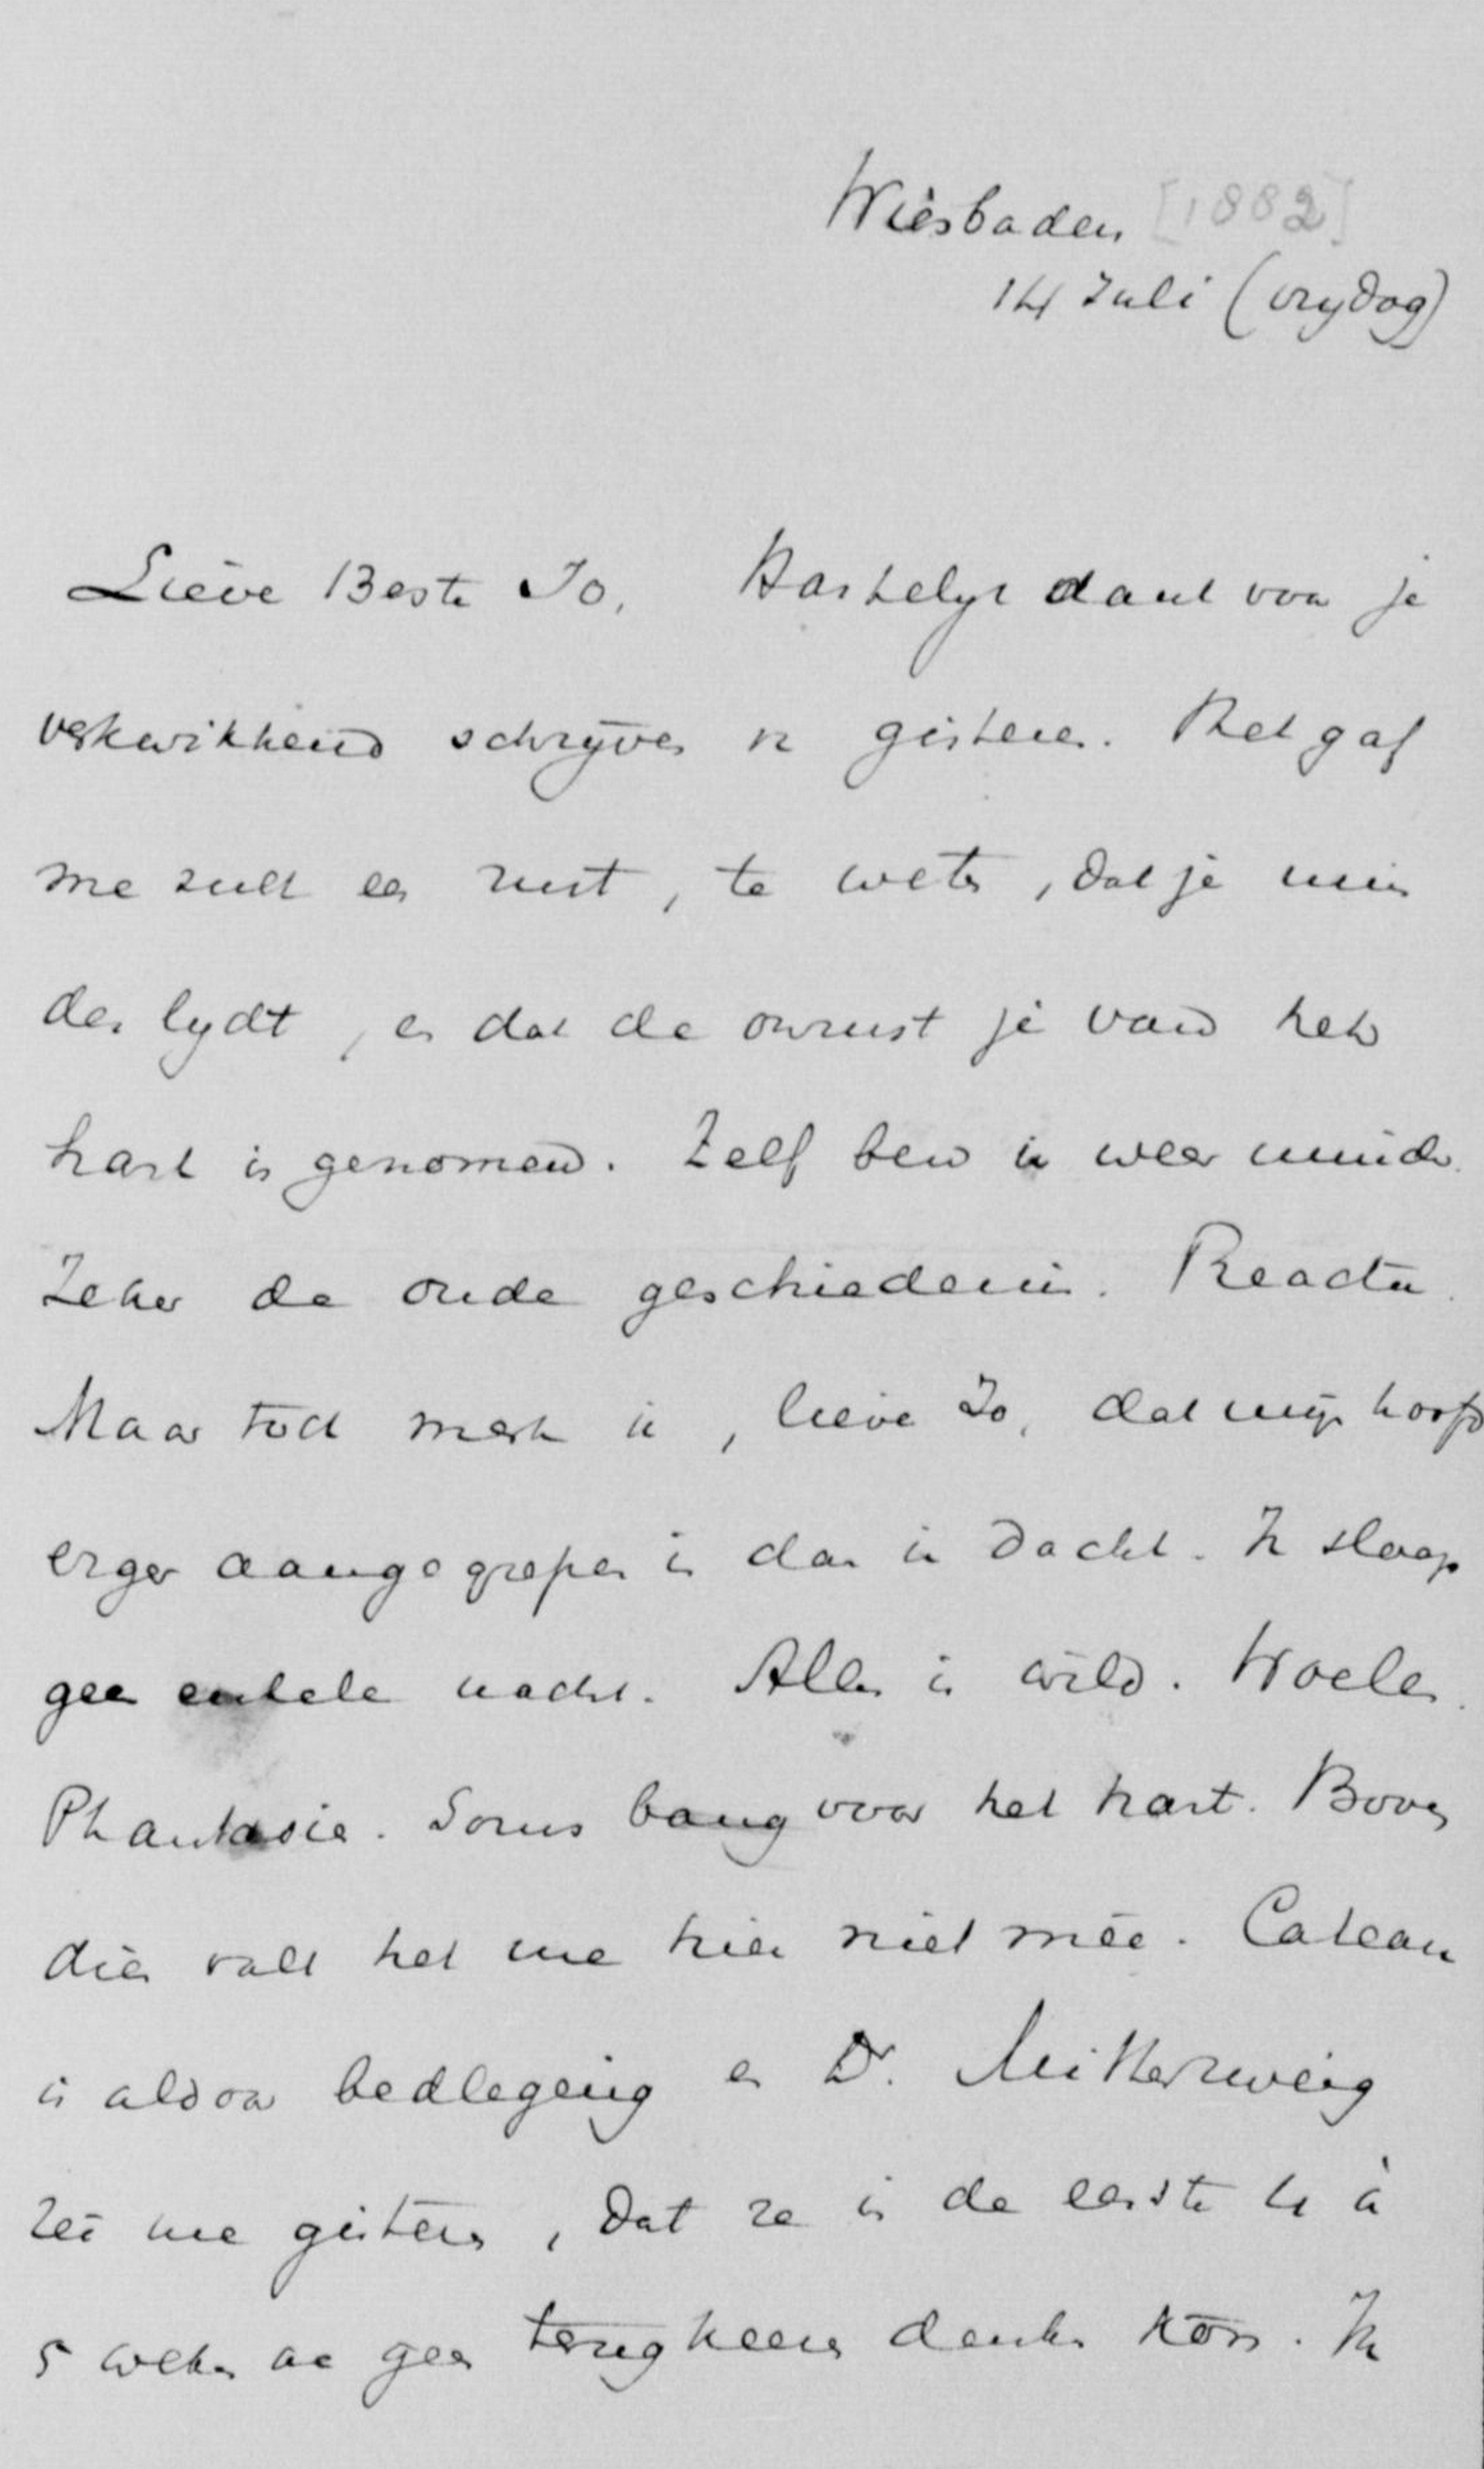 Wiesbaden [1882]
14 Juli (vrydag)
Lieve Beste Jo, Hartelyk dank voor je
verkwikkend schrijven v gisteren. Het gaf
me zulk een rust, te weten, dat je min
der lydt, en dat de onrust je van het
hart is genomen. Zelf ben ik weer minder.
Zeker de oude geschiedenis. Reactie.
Maar toch merk ik, lieve Jo, dat mijn hoofd
erger aangegrepen is dan ik dacht. Ik slaap
geen enkele nacht. Alles is wild. Woelen.
Phantasie. Soms bang voor het hart. Boven
dien valt het me hier niet mêe. Cateau
is aldoor bedlegerig en Dr. Mittenzweig
zei me gisteren, dat ze in de eerste 4 à
5 weken aan geen terugkeeren denken kon. Ik